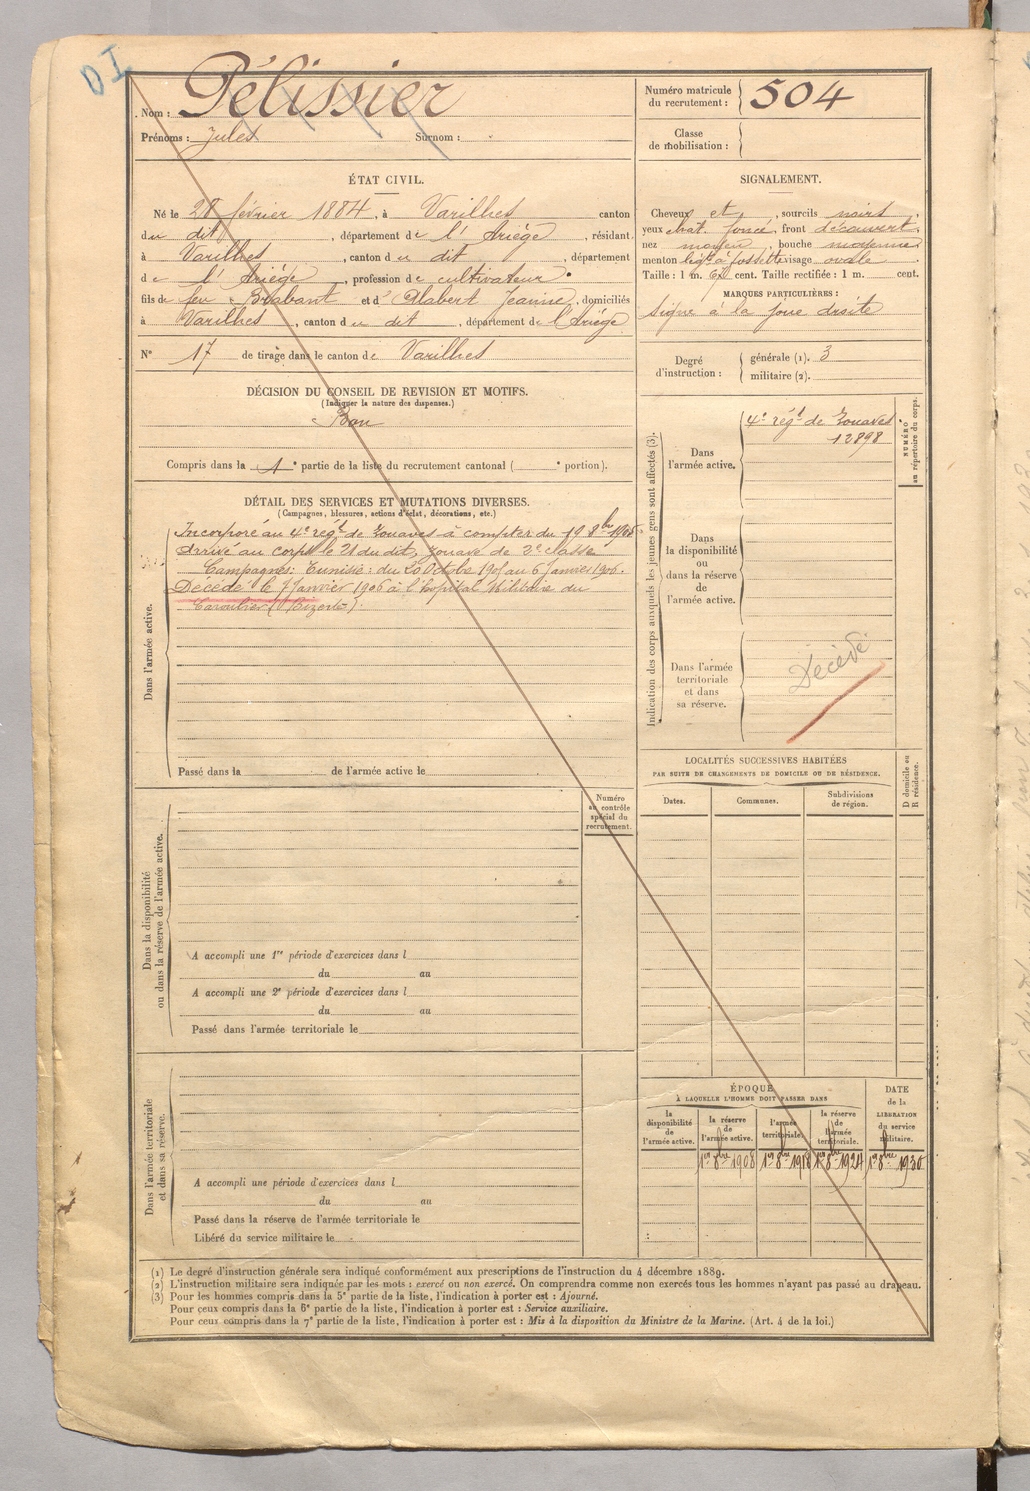 DI
Nom : Pélissier
Prénoms : Jules Surnom :
Numéro matricule du recrutement : 504
Classe de mobilisation :
ÉTAT CIVIL.
Né le 28 février 1884, à Varilhes canton
du dit, département de l'Ariège, résidant
à Varilhes, canton du dit, département
de l'Ariège, profession de cultivateur
fils de feu Brabant et d'Alabert Jeanne, domiciliés
à Varilhes, canton du dit, département de l'Ariège
N° 17 de tirage dans le canton de Varilhes
SIGNALEMENT.
Cheveux et, sourcils noirs,
yeux chat. foncé, front découvert,
nez moyen, bouche moyenne
menton à fossette visage ovale
Taille : 1 m. cent. Taille rectifiée : 1 m. cent.
MARQUES PARTICULIÈRES :
Signe à la joue droite
Degré d'instruction : générale (1). 3
militaire (2).
DÉCISION DU CONSEIL DE REVISION ET MOTIFS.
(Indiquer la nature des dispenses.)
Bon
Compris dans la 1e partie de la liste du recrutement cantonal ( e portion).
DÉTAIL DES SERVICES ET MUTATIONS DIVERSES.
(Campagnes, blessures, actions d'éclat, décorations, etc.)
Dans l'armée active.
Incorporé au 4e régt de Zouaves à compter du 19 8bre 1905
Arrivé au corps le 21 du dit, zouave de 2e classe
Campagnes : Tunisie : du 20 Octobre 1905 au 6 Janvier 1906.
Décédé le 7 Janvier 1906 à l'hôpital Militaire du
(Bizerte).
Passé dans la de l'armée active le
Indication des corps auxquels les jeunes gens sont affectés (3).
Dans l'armée active.
4e régt de Zouaves
12898
NUMÉRO au répertoire du corps.
Dans la disponibilité ou dans la réserve de l'armée active.
Dans l'armée territoriale et dans sa réserve.
Décédé
LOCALITÉS SUCCESSIVES HABITÉES
PAR SUITE DE CHANGEMENTS DE DOMICILE OU DE RÉSIDENCE.
Dates. Communes. Subdivisions de région.
D domicile ou R résidence.
Dans la disponibilité ou dans la réserve de l'armée active.
Numéro au contrôle spécial du recrutement.
A accompli une 1re période d'exercices dans l
du au
A accompli une 2e période d'exercices dans l
du au
Passé dans l'armée territoriale le
Dans l'armée territoriale et dans sa réserve.
A accompli une période d'exercices dans l
du au
Passé dans la réserve de l'armée territoriale le
Libéré du service militaire le
ÉPOQUE
À LAQUELLE L'HOMME DOIT PASSER DANS
la disponibilité de l'armée active.
la réserve de l'armée active.
l'armée territoriale.
la réserve de l'armée territoriale.
DATE de la LIBÉRATION du service militaire.
1er 8bre 1908 1er 8bre 1918 1er 8bre 1924 1er 8bre 1930
(1) Le degré d'instruction générale sera indiqué conformément aux prescriptions de l'instruction du 4 décembre 1889.
(2) L'instruction militaire sera indiquée par les mots : exercé ou non exercé. On comprendra comme non exercés tous les hommes n'ayant pas passé au drapeau.
(3) Pour les hommes compris dans la 5e partie de la liste, l'indication à porter est : Ajourné.
Pour ceux compris dans la 6e partie de la liste, l'indication à porter est : Service auxiliaire.
Pour ceux compris dans la 7e partie de la liste, l'indication à porter est : Mis à la disposition du Ministre de la Marine. (Art. 4 de la loi.)